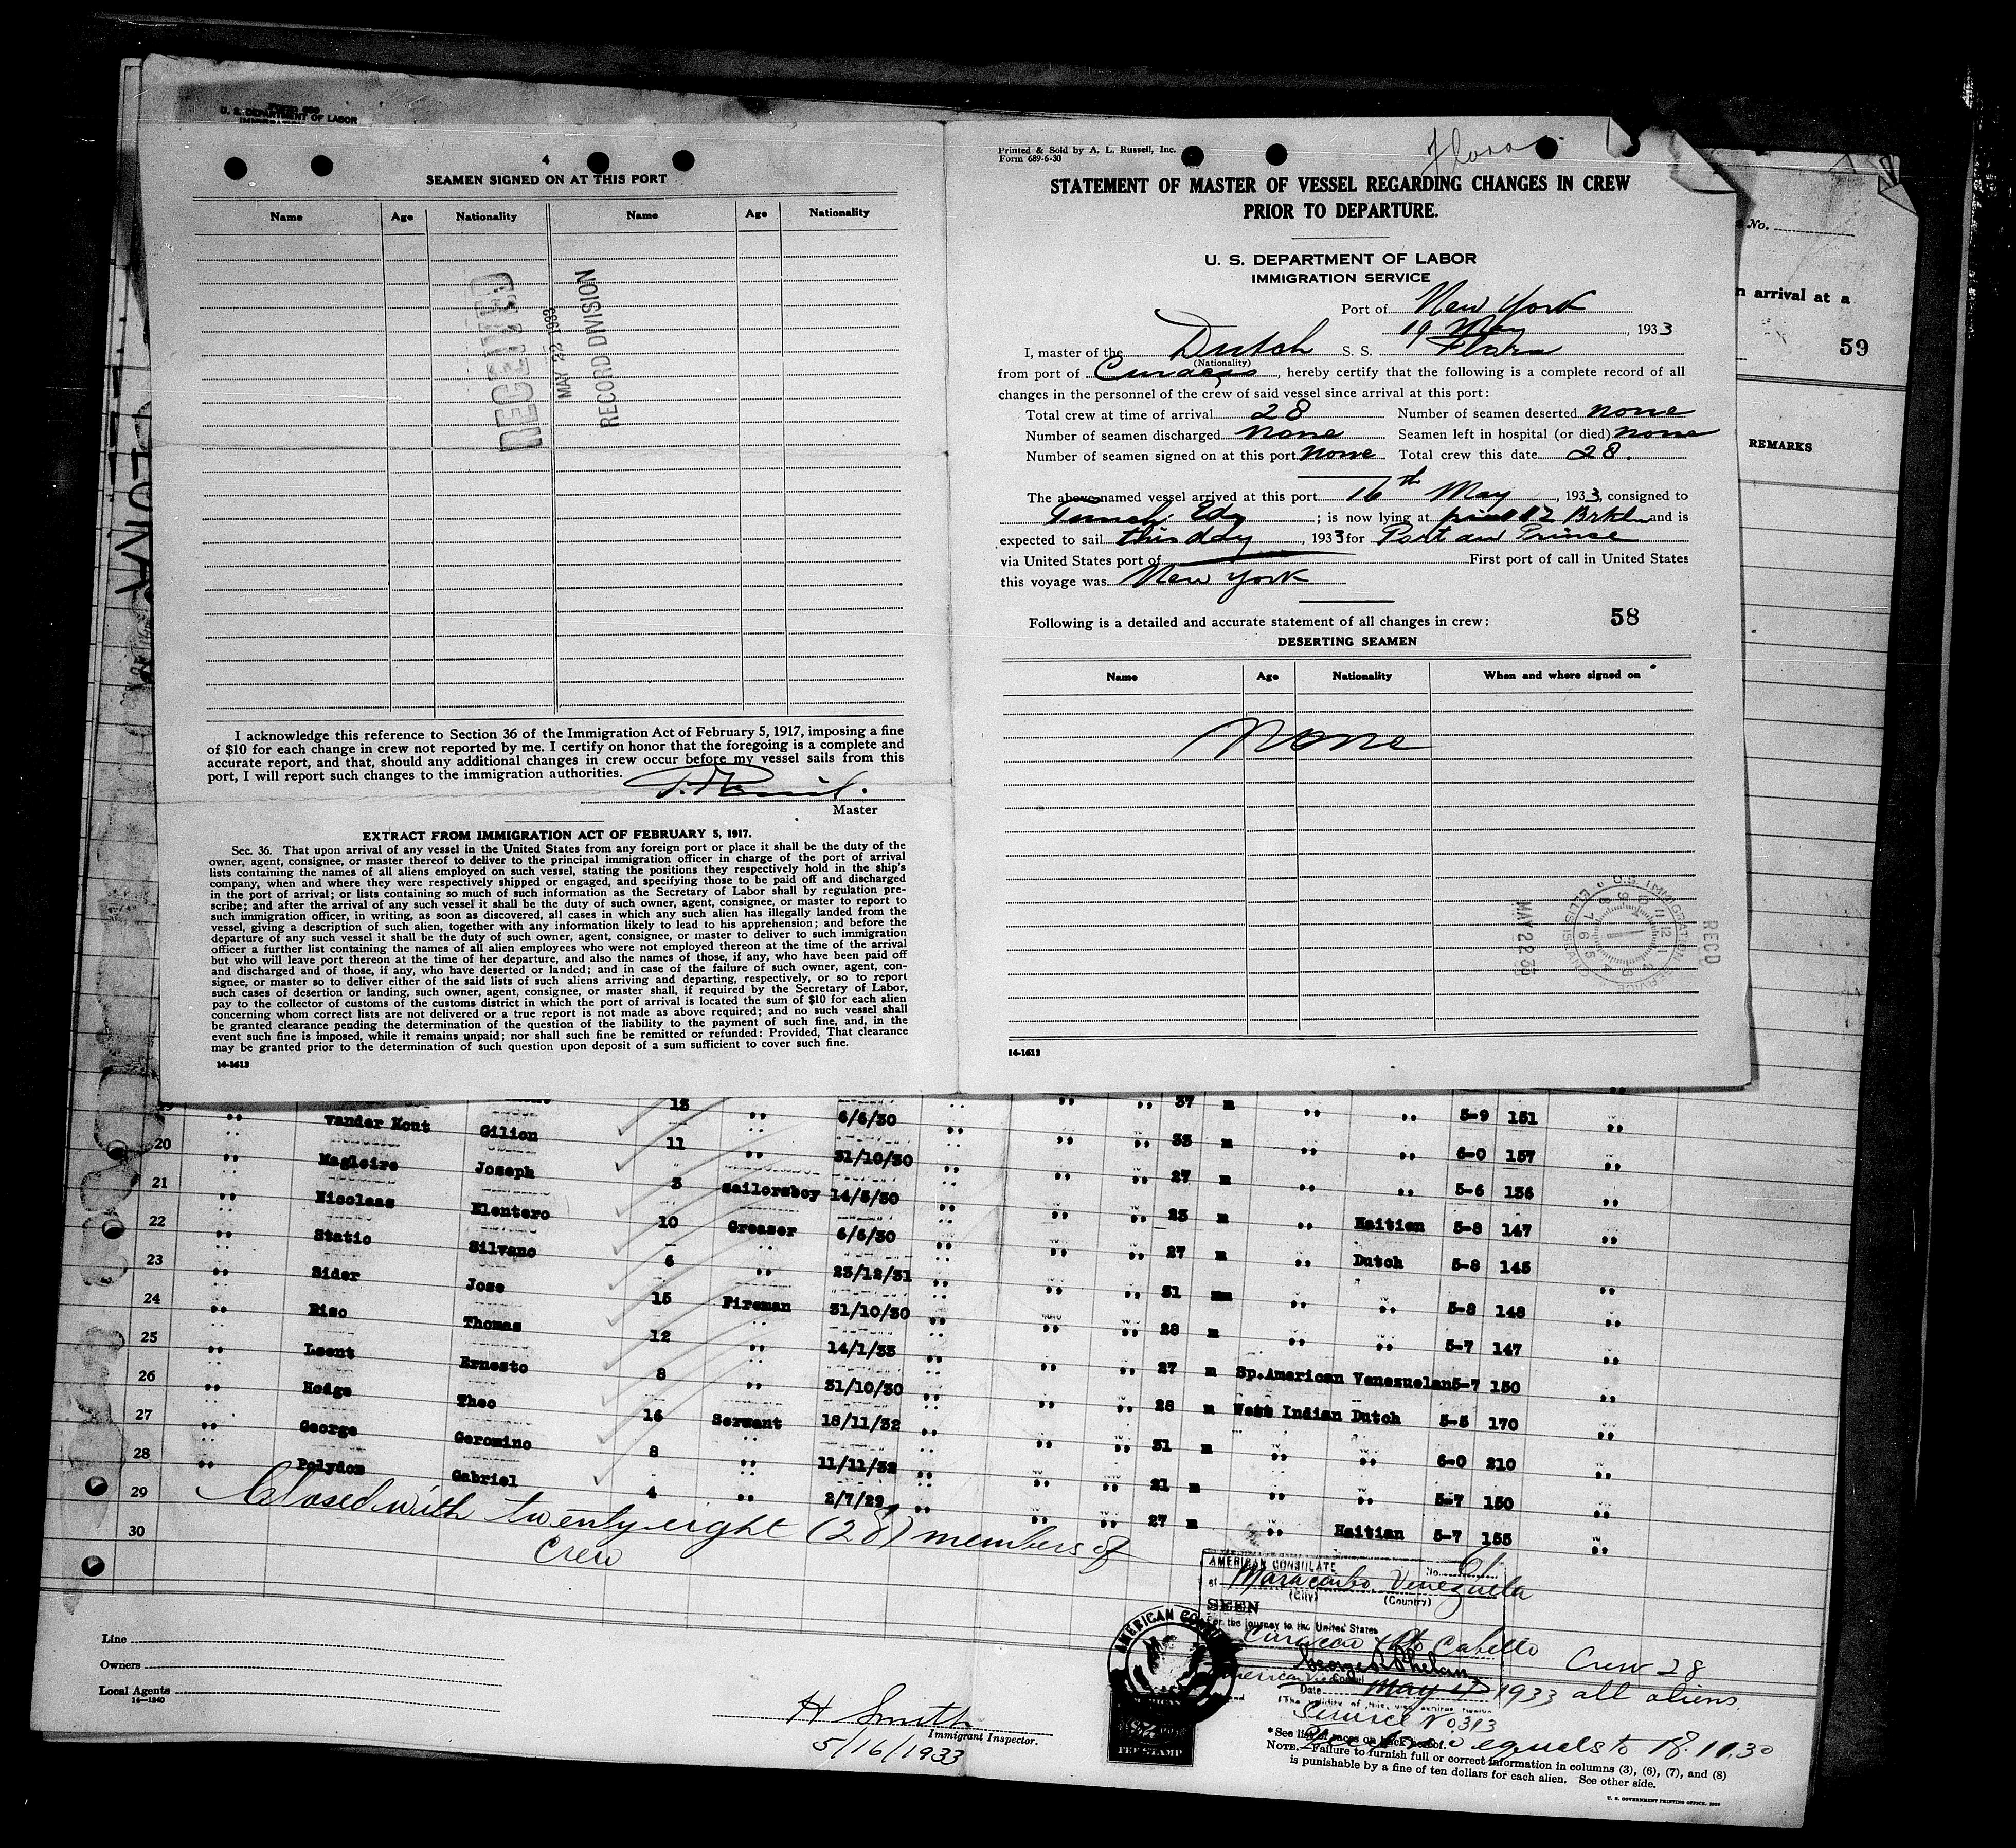 Form 689
U. S. DEPARTMENT OF LABOR
4
SEAMEN SIGNED ON AT THIS PORT
Name Age Nationality Name Age Nationality
RECEIVED
MAY 22 1933
RECORD DIVISION
I acknowledge this reference to Section 36 of the Immigration Act of February 5, 1917, imposing a fine
of $10 for each change in crew not reported by me. I certify on honor that the foregoing is a complete and
accurate report, and that, should any additional changes in crew occur before my vessel sails from this
port, I will report such changes to the immigration authorities.
Master
EXTRACT FROM IMMIGRATION ACT OF FEBRUARY 5, 1917.
Sec. 36. That upon arrival of any vessel in the United States from any foreign port or place it shall be the duty of the
owner, agent, consignee, or master thereof to deliver to the principal immigration officer in charge of the port of arrival
lists containing the names of all aliens employed on such vessel, stating the positions they respectively hold in the ship's
company, when and where they were respectively shipped or engaged, and specifying those to be paid off and discharged
in the port of arrival; or lists containing so much of such information as the Secretary of Labor shall by regulation pre-
scribe; and after the arrival of any such vessel it shall be the duty of such owner, agent, consignee, or master to report to
such immigration officer, in writing, as soon as discovered, all cases in which any such alien has illegally landed from the
vessel, giving a description of such alien, together with any information likely to lead to his apprehension; and before the
departure of any such vessel it shall be the duty of such owner, agent, consignee, or master to deliver to such immigration
officer a further list containing the names of all alien employees who were not employed thereon at the time of the arrival
but who will leave port thereon at the time of her departure, and also the names of those, if any, who have been paid off
and discharged and of those, if any, who have deserted or landed; and in case of the failure of such owner, agent, con-
signee, or master so to deliver either of the said lists of such aliens arriving and departing, respectively, or so to report
such cases of desertion or landing, such owner, agent, consignee, or master shall, if required by the Secretary of Labor,
pay to the collector of customs of the customs district in which the port of arrival is located the sum of $10 for each alien
concerning whom correct lists are not delivered or a true report is not made as above required; and no such vessel shall
be granted clearance pending the determination of the question of the liability to the payment of such fine, and, in the
event such fine is imposed, while it remains unpaid; nor shall such fine be remitted or refunded: Provided, That clearance
may be granted prior to the determination of such question upon deposit of a sum sufficient to cover such fine.
14-1613
Printed & Sold by A. L. Russell, Inc.
Form 689-6-30
Flora
STATEMENT OF MASTER OF VESSEL REGARDING CHANGES IN CREW
PRIOR TO DEPARTURE.
U. S. DEPARTMENT OF LABOR
IMMIGRATION SERVICE
Port of New York
19 May, 1933
I, master of the Dutch S. S. Flora
(Nationality)
from port of Curacao, hereby certify that the following is a complete record of all
changes in the personnel of the crew of said vessel since arrival at this port:
Total crew at time of arrival 28 Number of seamen deserted none
Number of seamen discharged none Seamen left in hospital (or died) none
Number of seamen signed on at this port none Total crew this date 28.
The above-named vessel arrived at this port 16th May, 1933, consigned to
Funch Edy; is now lying at pier 12 Brkln and is
expected to sail this day, 1933 for Port au Prince
via United States port of First port of call in United States
this voyage was New York
Following is a detailed and accurate statement of all changes in crew: 58
DESERTING SEAMEN
Name Age Nationality When and where signed on
none
REC'D
U.S. IMMIGRATION SERVICE ELLIS ISLAND
MAY 22 33
14-1613
No.
n arrival at a
59
REMARKS
FLORA
13 6/6/30 37 m 5-9 151
20 vander Hout Gilion 11 31/10/30 33 m 6-0 157
21 Magloire Joseph 3 sailorsboy 14/5/30 27 m 5-6 136
22 Nicolaas Elentero 10 Greaser 6/6/30 25 m Haitien 5-8 147
23 Static Silvano 6 23/12/31 27 m Dutch 5-8 145
24 Sider Jose 15 Fireman 31/10/30 31 m 5-8 148
25 Riso Thomas 12 14/1/33 28 m 5-7 147
26 Leent Ernesto 8 31/10/30 27 m Sp.American Venezuelan 5-7 150
27 Hodge Theo 16 Servant 18/11/32 28 m West Indian Dutch 5-5 170
28 George Geromino 8 11/11/32 31 m 6-0 210
29 Polydor Gabriel 4 2/7/29 21 m 5-7 150
30 27 m Haitian 5-7 155
Closed with twenty eight (28) members of
crew
Line
Owners
Local Agents
14-1240
H Smith
Immigrant Inspector.
5/16/1933
AMERICAN CONSULATE No. 61
at Maracaibo, Venezuela
(City) (Country)
SEEN
For the journey to the United States
Curacao Pto Cabello
George R Phelan
American Vice Consul
Date May 4 1933
Crew 28
all aliens
Service No. 313
equals to 18.11.30
AMERICAN CONSUL
FEE STAMP
*See list of races on back hereof.
NOTE.—Failure to furnish full or correct information in columns (3), (6), (7), and (8)
is punishable by a fine of ten dollars for each alien. See other side.
U. S. GOVERNMENT PRINTING OFFICE